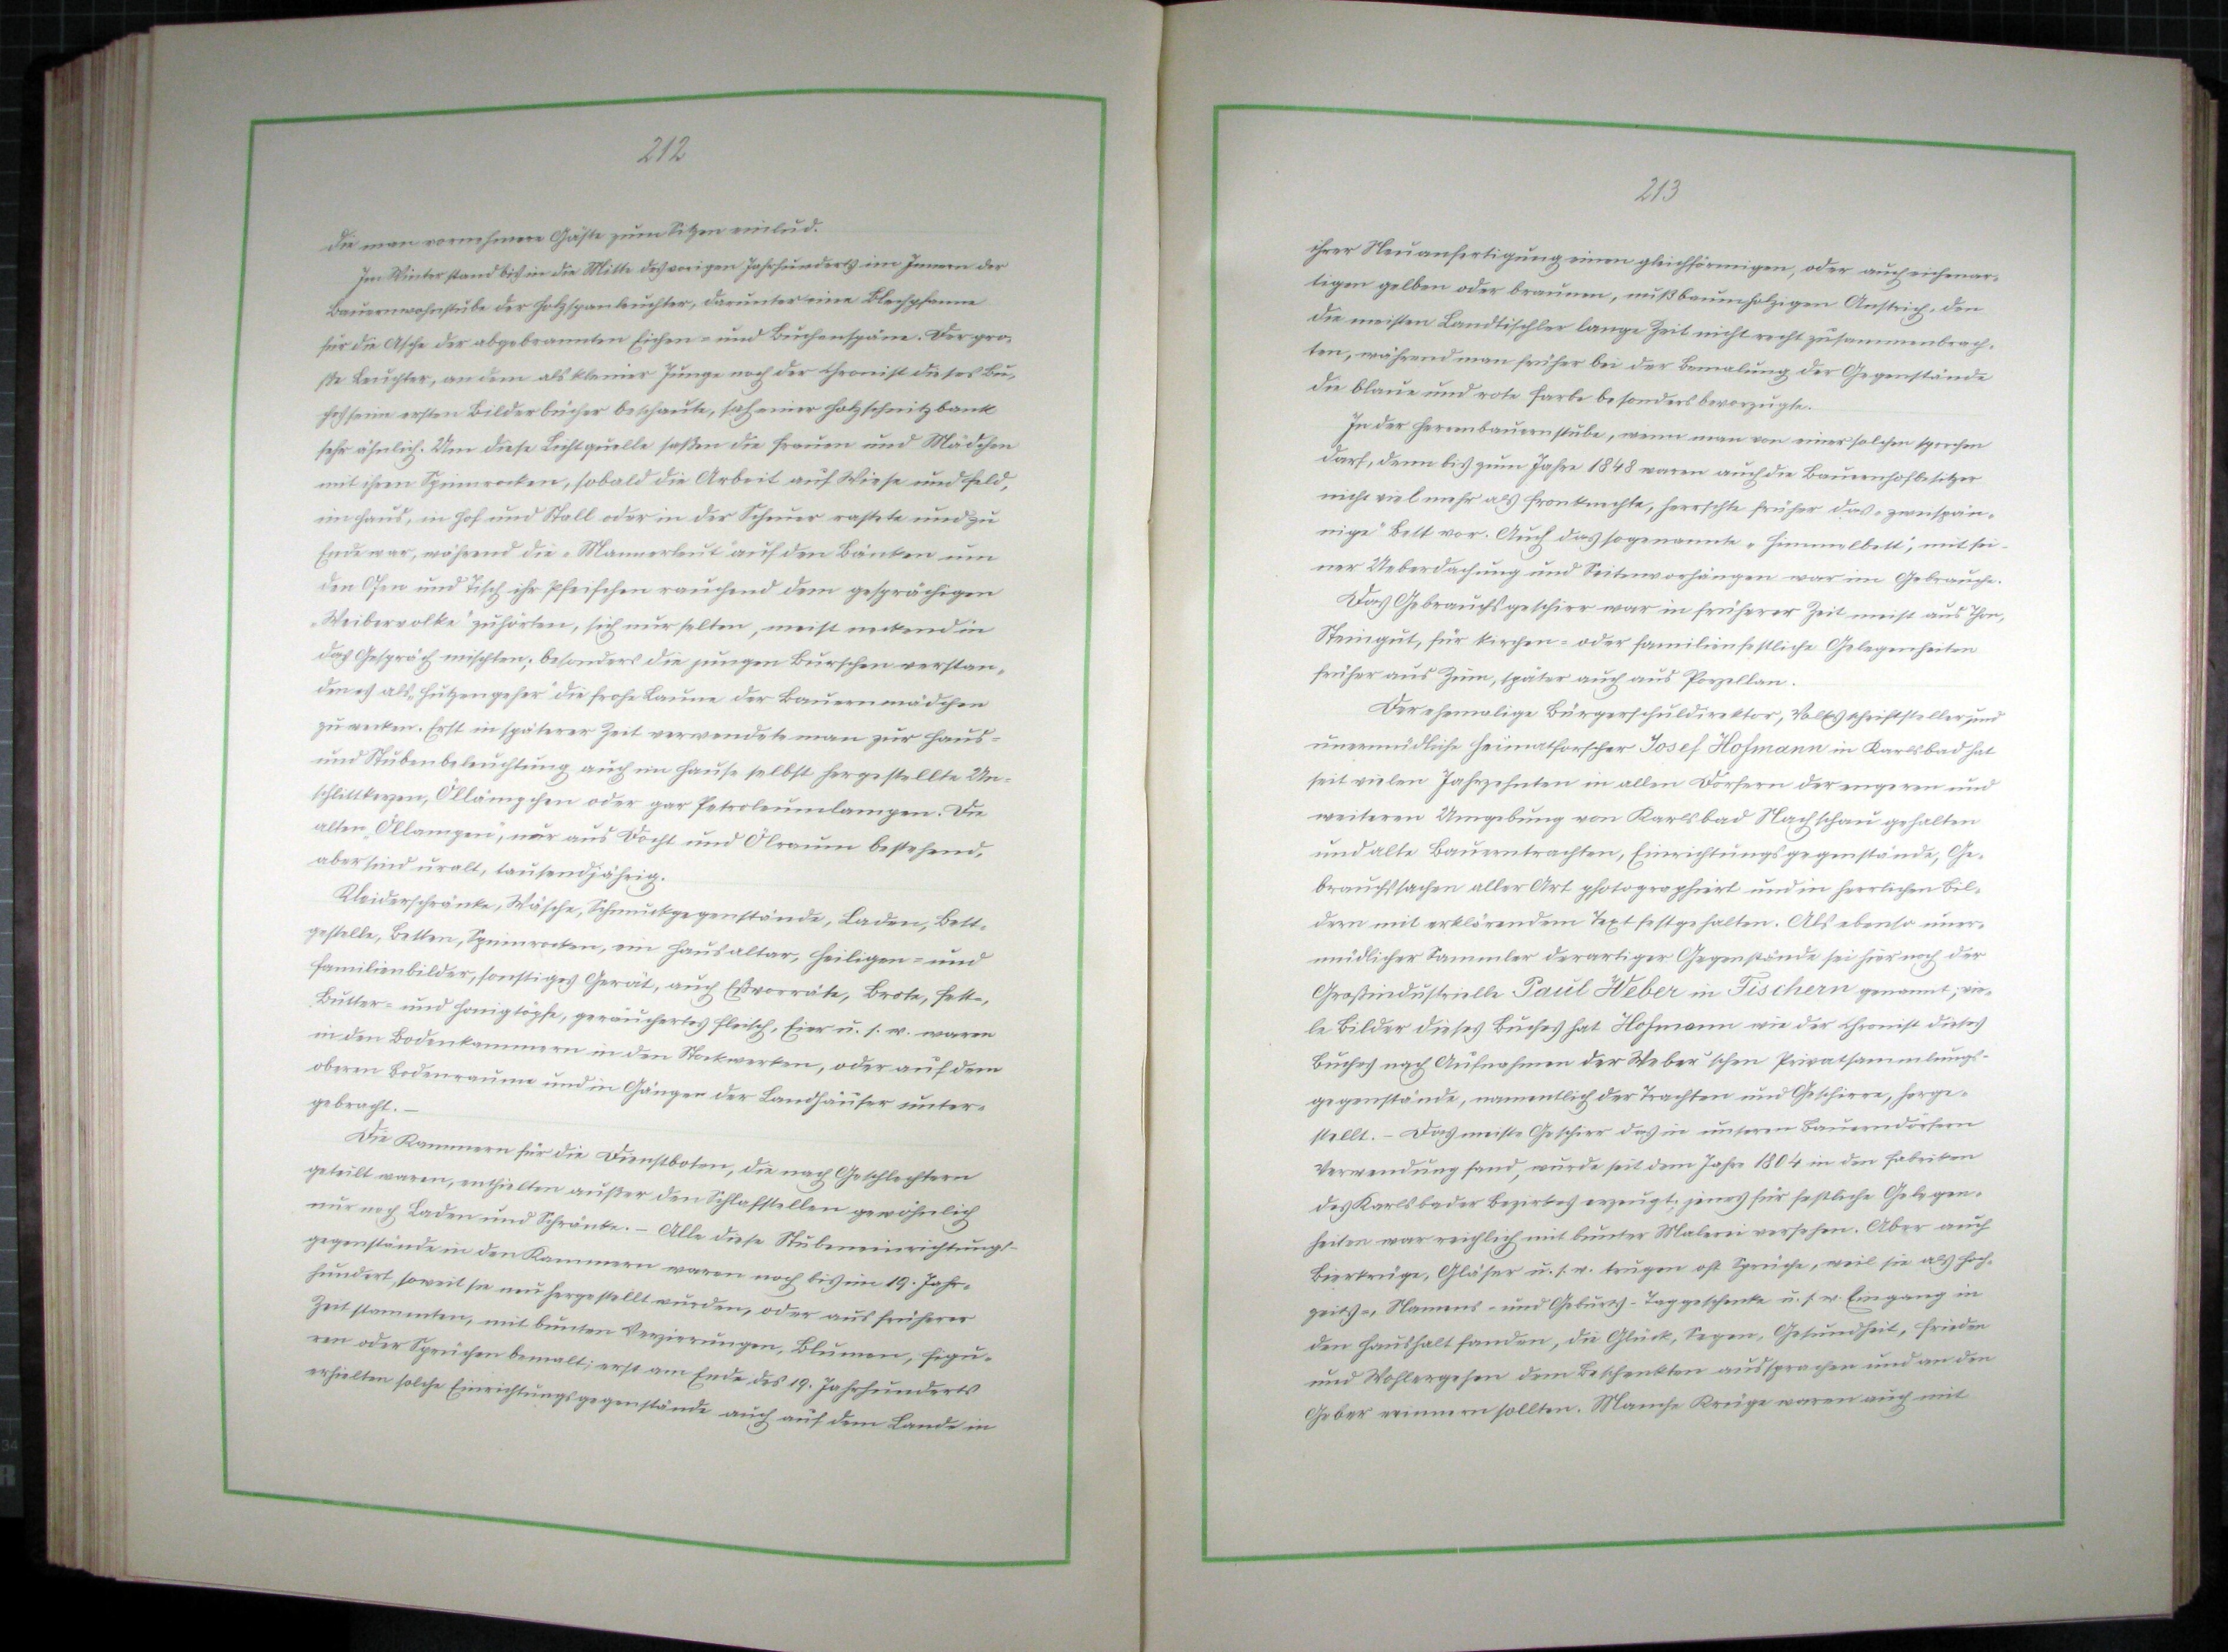 212
die man vornehmere Gäste zum Sitzen einlud.
Im Winter stand bis in die Mitte des vorigen Jahrhunderts im Innern der
Bauernwohnstube der Holzspanleuchter, darunter eine Blechpfanne
für die Asche der abgebrannten Eichen- und Buchenspäne. Der gro-
ße Leuchter, an dem als kleiner Junge noch der Chronist dieses Bu-
ches seine ersten Bilderbücher beschaute, sah einer Holzschnitzbank
sehr ähnlich. Um diese Lichtquelle saßen die Frauen und Mädchen
mit ihren Spinnrocken, sobald die Arbeit auf Wiese und Feld,
im Haus, in Hof und Stall oder in der Scheuer rastete und zu
Ende war, während die „Mannerleut" auf den Bänken um
den Ofen und Tisch ihr Pfeifchen rauchend dem gesprächigen
„Weibervolke" zuhörten, sich nur selten, meist neckend in
das Gespräch mischten; besonders die jungen Burschen verstan-
den es als „Hutzengeher" die frohe Laune der Bauernmädchen
zu wecken. Erst in späterer Zeit verwendete man zur Haus-
und Stubenbeleuchtung auch im Hause selbst hergestellte Un-
schlittkerzen, Öllämpchen oder gar Petroleumlampen. Die
alten „Öllampen", nur aus Docht und Ölraum bestehend,
aber sind uralt, tausendjährig.
Kleiderschränke, Wäsche, Schmuckgegenstände, Laden, Bett-
gestelle, Betten, Spinnrocken, ein Hausaltar, Heiligen- und
Familienbilder, sonstiges Gerät, auch Eßvorräte, Brote, Fett-,
Butter- und Honigtöpfe, geräuchertes Fleisch, Eier u. s. w. waren
in den Bodenkammern in den Stockwerken, oder auf dem
oberen Bodenraume und in Gängen der Landhäuser unter-
gebracht. –
Die Kammern für die Dienstboten, die nach Geschlechtern
geteilt waren, enthielten außer den Schlafstellen gewöhnlich
nur noch Laden und Schränke. – Alle diese Stubeneinrichtungs-
gegenstände in den Kammern waren noch bis im 19. Jahr-
hundert, soweit sie neu hergestellt wurden, oder aus früherer
Zeit stammten, mit bunten Verzierungen, Blumen, Figu-
ren oder Sprüchen bemalt; erst am Ende des 19. Jahrhunderts
erhielten solche Einrichtungsgegenstände auch auf dem Lande in
213
ihrer Neuanfertigung einen gleichförmigen, oder auch eichenar-
tigen gelben oder braunen, nußbaumholzigen Anstrich, den
die meisten Landtischler lange Zeit nicht recht zusammenbrach-
ten, während man früher bei der Bemalung der Gegenstände
die blaue und rote Farbe besonders bevorzugte.
In der Herrenbauernstube, wenn man von einer solchen sprechen
darf, denn bis zum Jahre 1848 waren auch die Bauernhofbesitzer
nicht viel mehr als Fronknechte, herrschte früher das „zweispän-
nige" Bett vor. Auch das sogenannte „Himmelbett", mit sei-
ner Ueberdachung und Seitenvorhängen war im Gebrauche.
Das Gebrauchsgeschirr war in früherer Zeit meist aus Thon,
Steingut, für kirchen- oder familienfestliche Gelegenheiten
früher aus Zinn, später auch aus Porzellan.
Der ehemalige Bürgerschuldirektor, Volksschriftsteller und
unermüdliche Heimatforscher Josef Hofmann in Karlsbad hat
seit vielen Jahrzehnten in allen Dörfern der engeren und
weiteren Umgebung von Karlsbad Nachschau gehalten
und alte Bauerntrachten, Einrichtungsgegenstände, Ge-
brauchssachen aller Art photographiert und in herrlichen Bil-
dern mit erklärendem Text festgehalten. Als ebenso uner-
müdlicher Sammler derartiger Gegenstände sei hier noch der
Großindustrielle Paul Weber in Fischern genannt; vie-
le Bilder dieses Buches hat Hofmann wie der Chronist dieses
Buches nach Aufnahmen der Weber'schen Privatsammlungs-
gegenstände, namentlich der Trachten und Geschirre, herge-
stellt. – Das meiste Geschirr das in unseren Bauerndörfern
Verwendung fand, wurde seit dem Jahre 1804 in den Fabriken
des Karlsbader Bezirkes erzeugt; jenes für festliche Gelegen-
heiten war reichlich mit bunter Malerei versehen. Aber auch
Bierkrüge, Gläser u. s. w. trugen oft Sprüche, weil sie als Hoch-
zeits-, Namens- und Geburts-Taggeschenke u. s. w. Eingang in
den Haushalt fanden, die Glück, Segen, Gesundheit, Frieden
und Wohlergehen dem Beschenkten aussprachen und an den
Geber erinnern sollten. Manche Krüge waren auch mit
34
R